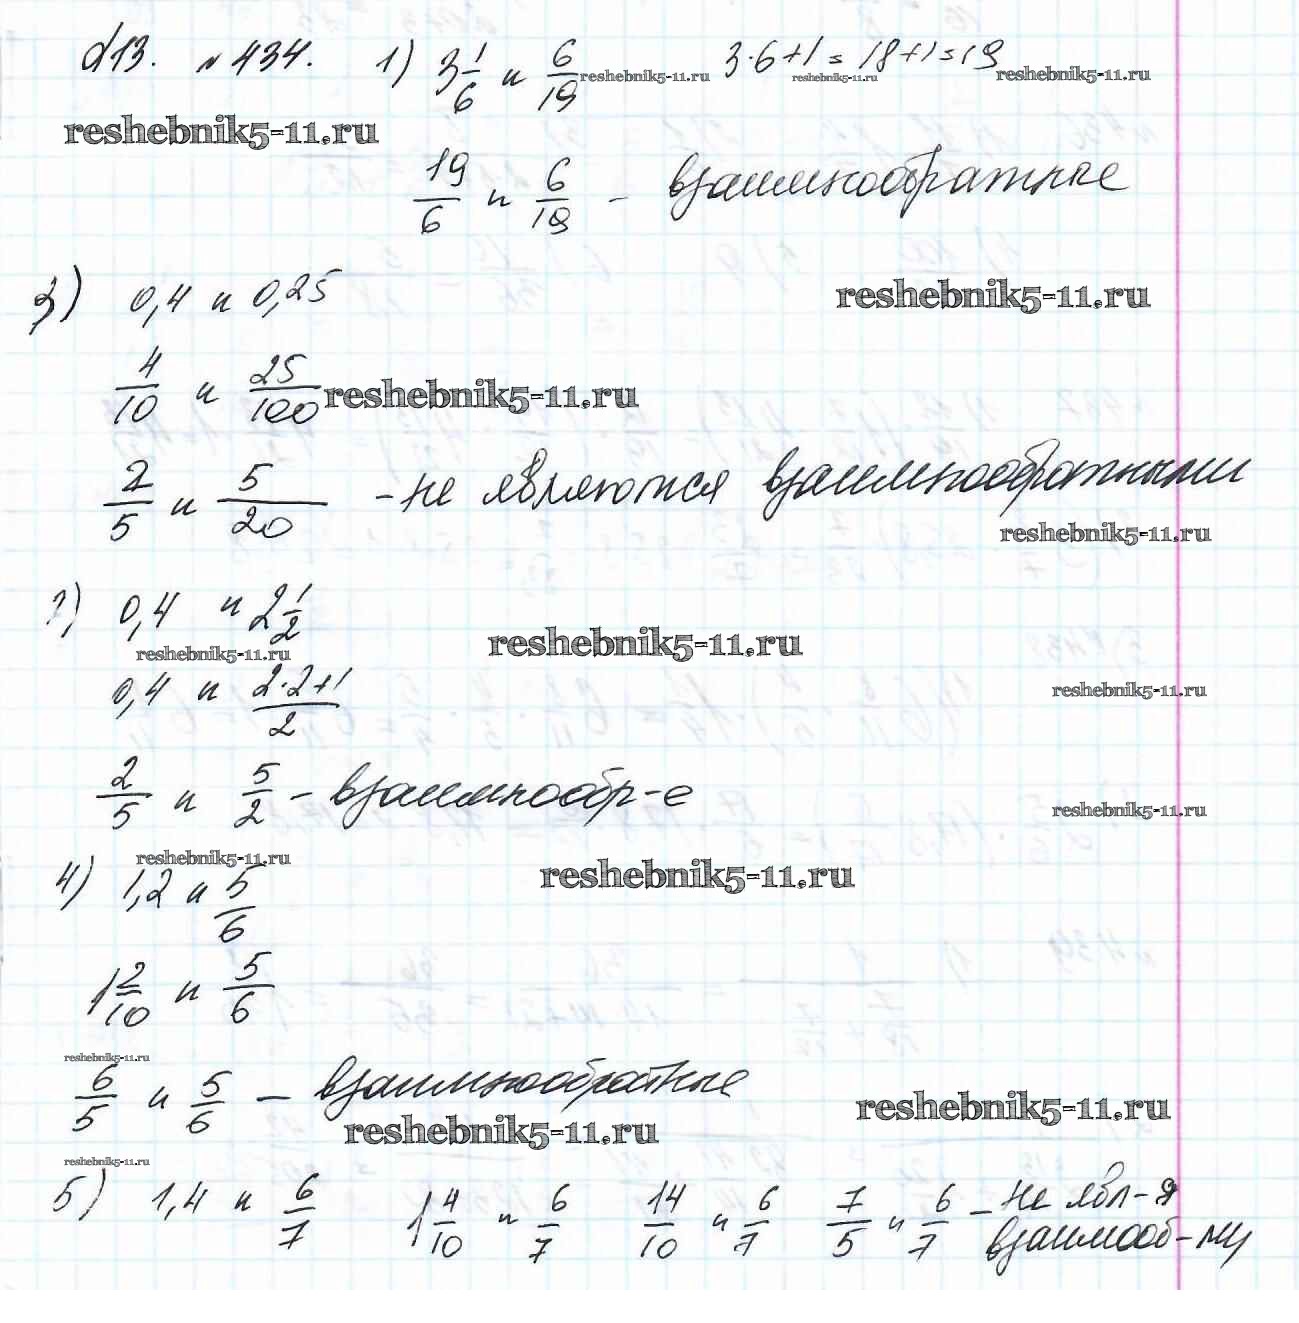 d13. №434. 1) 3 1/6 и 6/19 reshebnik5-11.ru 3·6+1=18+1=19 reshebnik5-11.ru reshebnik5-11.ru
reshebnik5-11.ru
19/6 и 6/19 - взаимнообратные
3) 0,4 и 0,25 reshebnik5-11.ru
4/10 и 25/100 reshebnik5-11.ru
2/5 и 5/20 - не являются взаимнообратными
reshebnik5-11.ru
2) 0,4 и 2 1/2
reshebnik5-11.ru reshebnik5-11.ru
0,4 и 2·2+1/2 reshebnik5-11.ru
2/5 и 5/2 - взаимнообр-е reshebnik5-11.ru
reshebnik5-11.ru
4) 1,2 и 5/6 reshebnik5-11.ru
1 2/10 и 5/6
reshebnik5-11.ru
6/5 и 5/6 - взаимнообратные reshebnik5-11.ru
reshebnik5-11.ru
reshebnik5-11.ru
5) 1,4 и 6/7 1 4/10 и 6/7 14/10 и 6/7 7/5 и 6/7 - не явл-я
взаимооб-ми